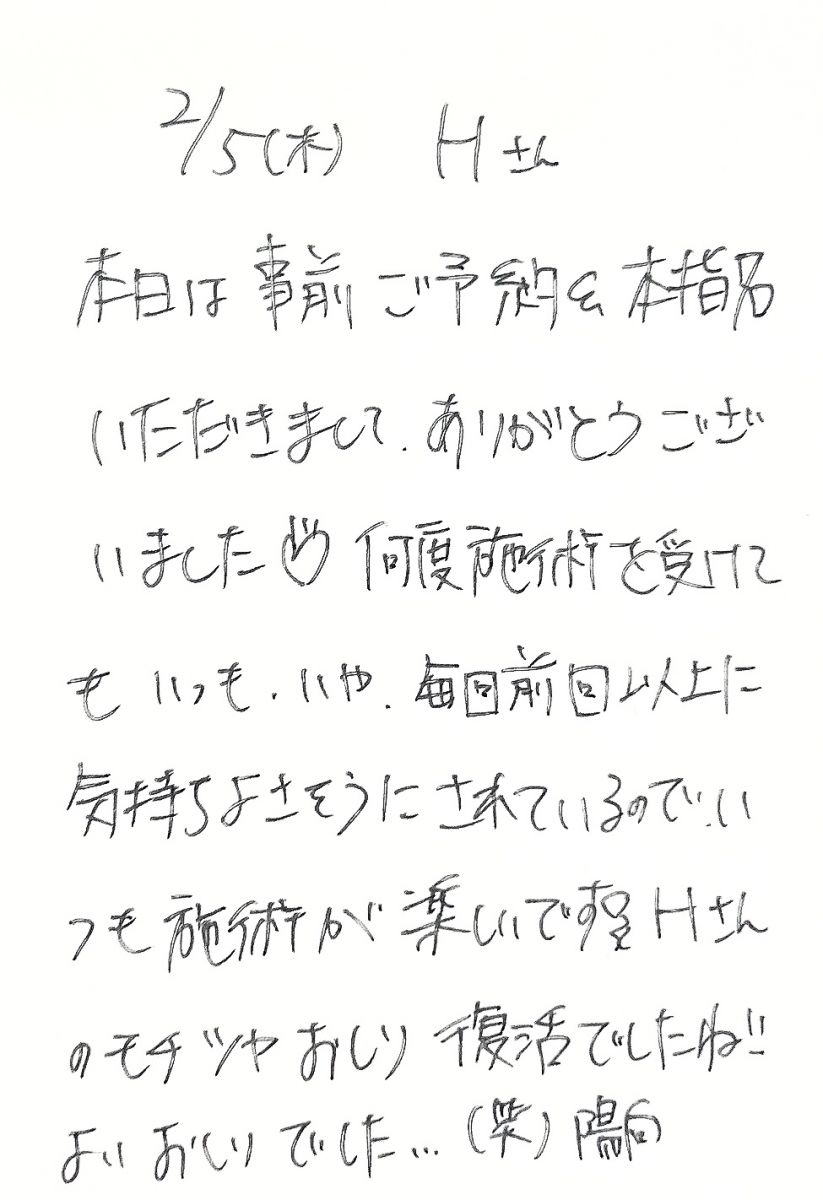 2/5(木) Hさん
本日は事前ご予約&本指名
いただきまして、ありがとうござ
いました♡ 何度施術を受けて
も いつも、いや、毎回前回以上に
気持ちよさそうにされているので、い
つも 施術が 楽しいです Hさん
のモチツヤ おしり 復活でしたね!!
よいおしりでした…(笑) 陽向